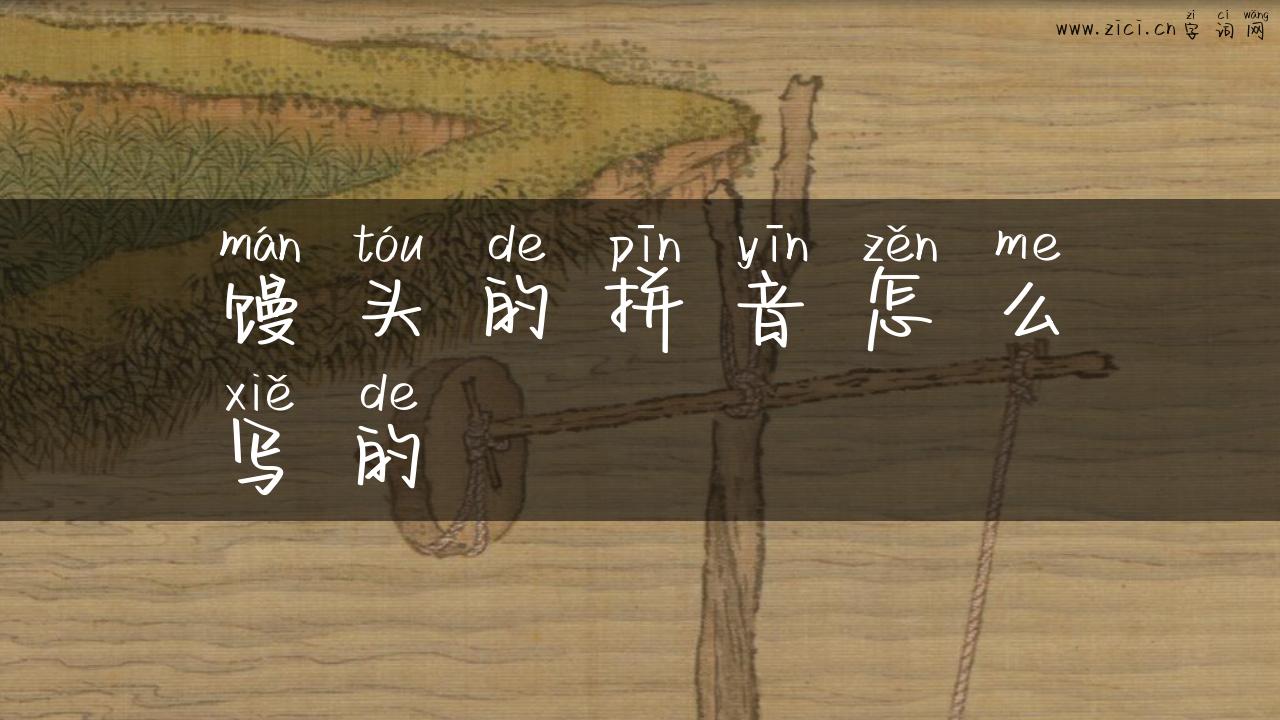 zì cí wǎng
www.zici.cn字词网
mán tóu de pīn yīn zěn me
馒头的拼音怎么
xiě de
写的